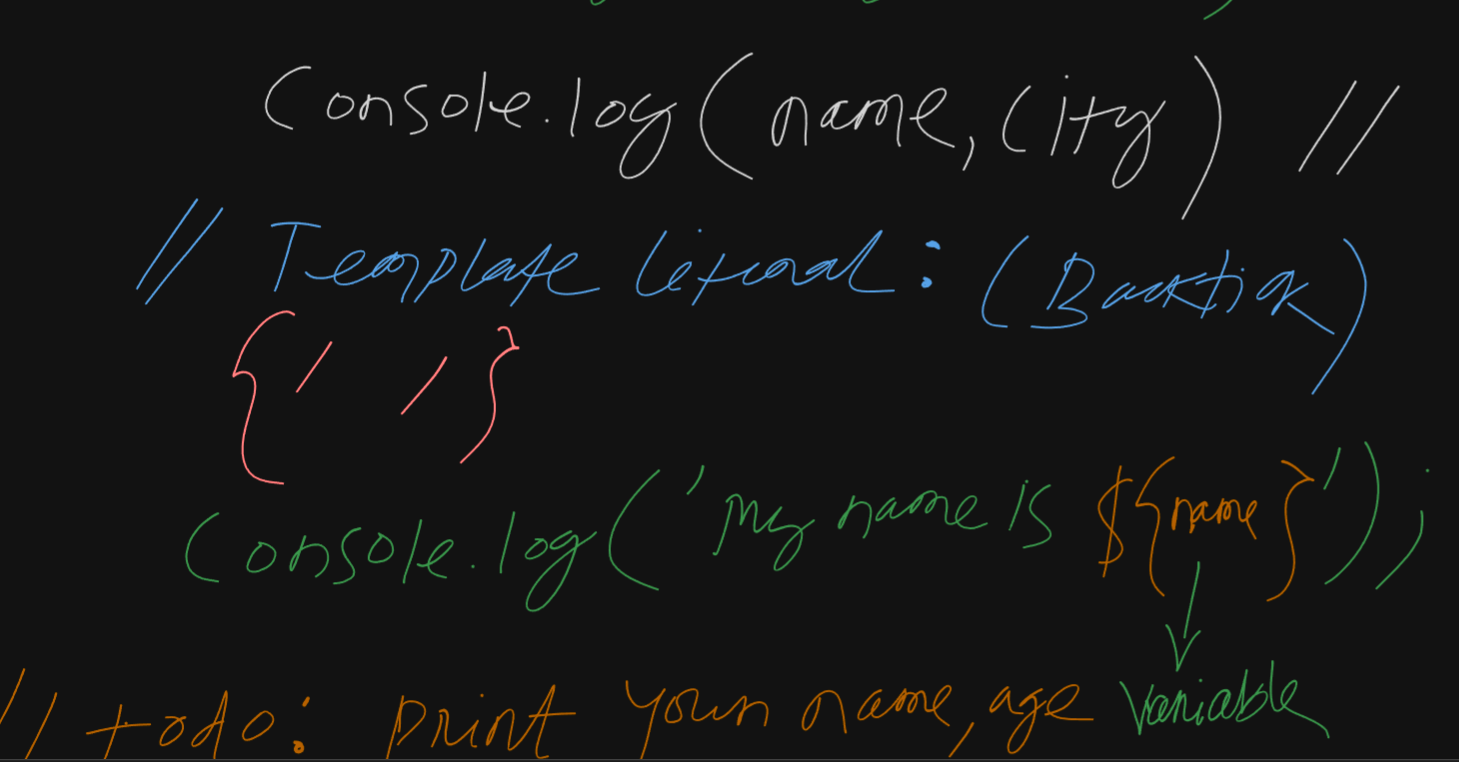 Console.log(name, City) //
// Template literal : (Backtick)
{' '}
Console.log('My name is ${name}');
variable
// todo: print your name, age